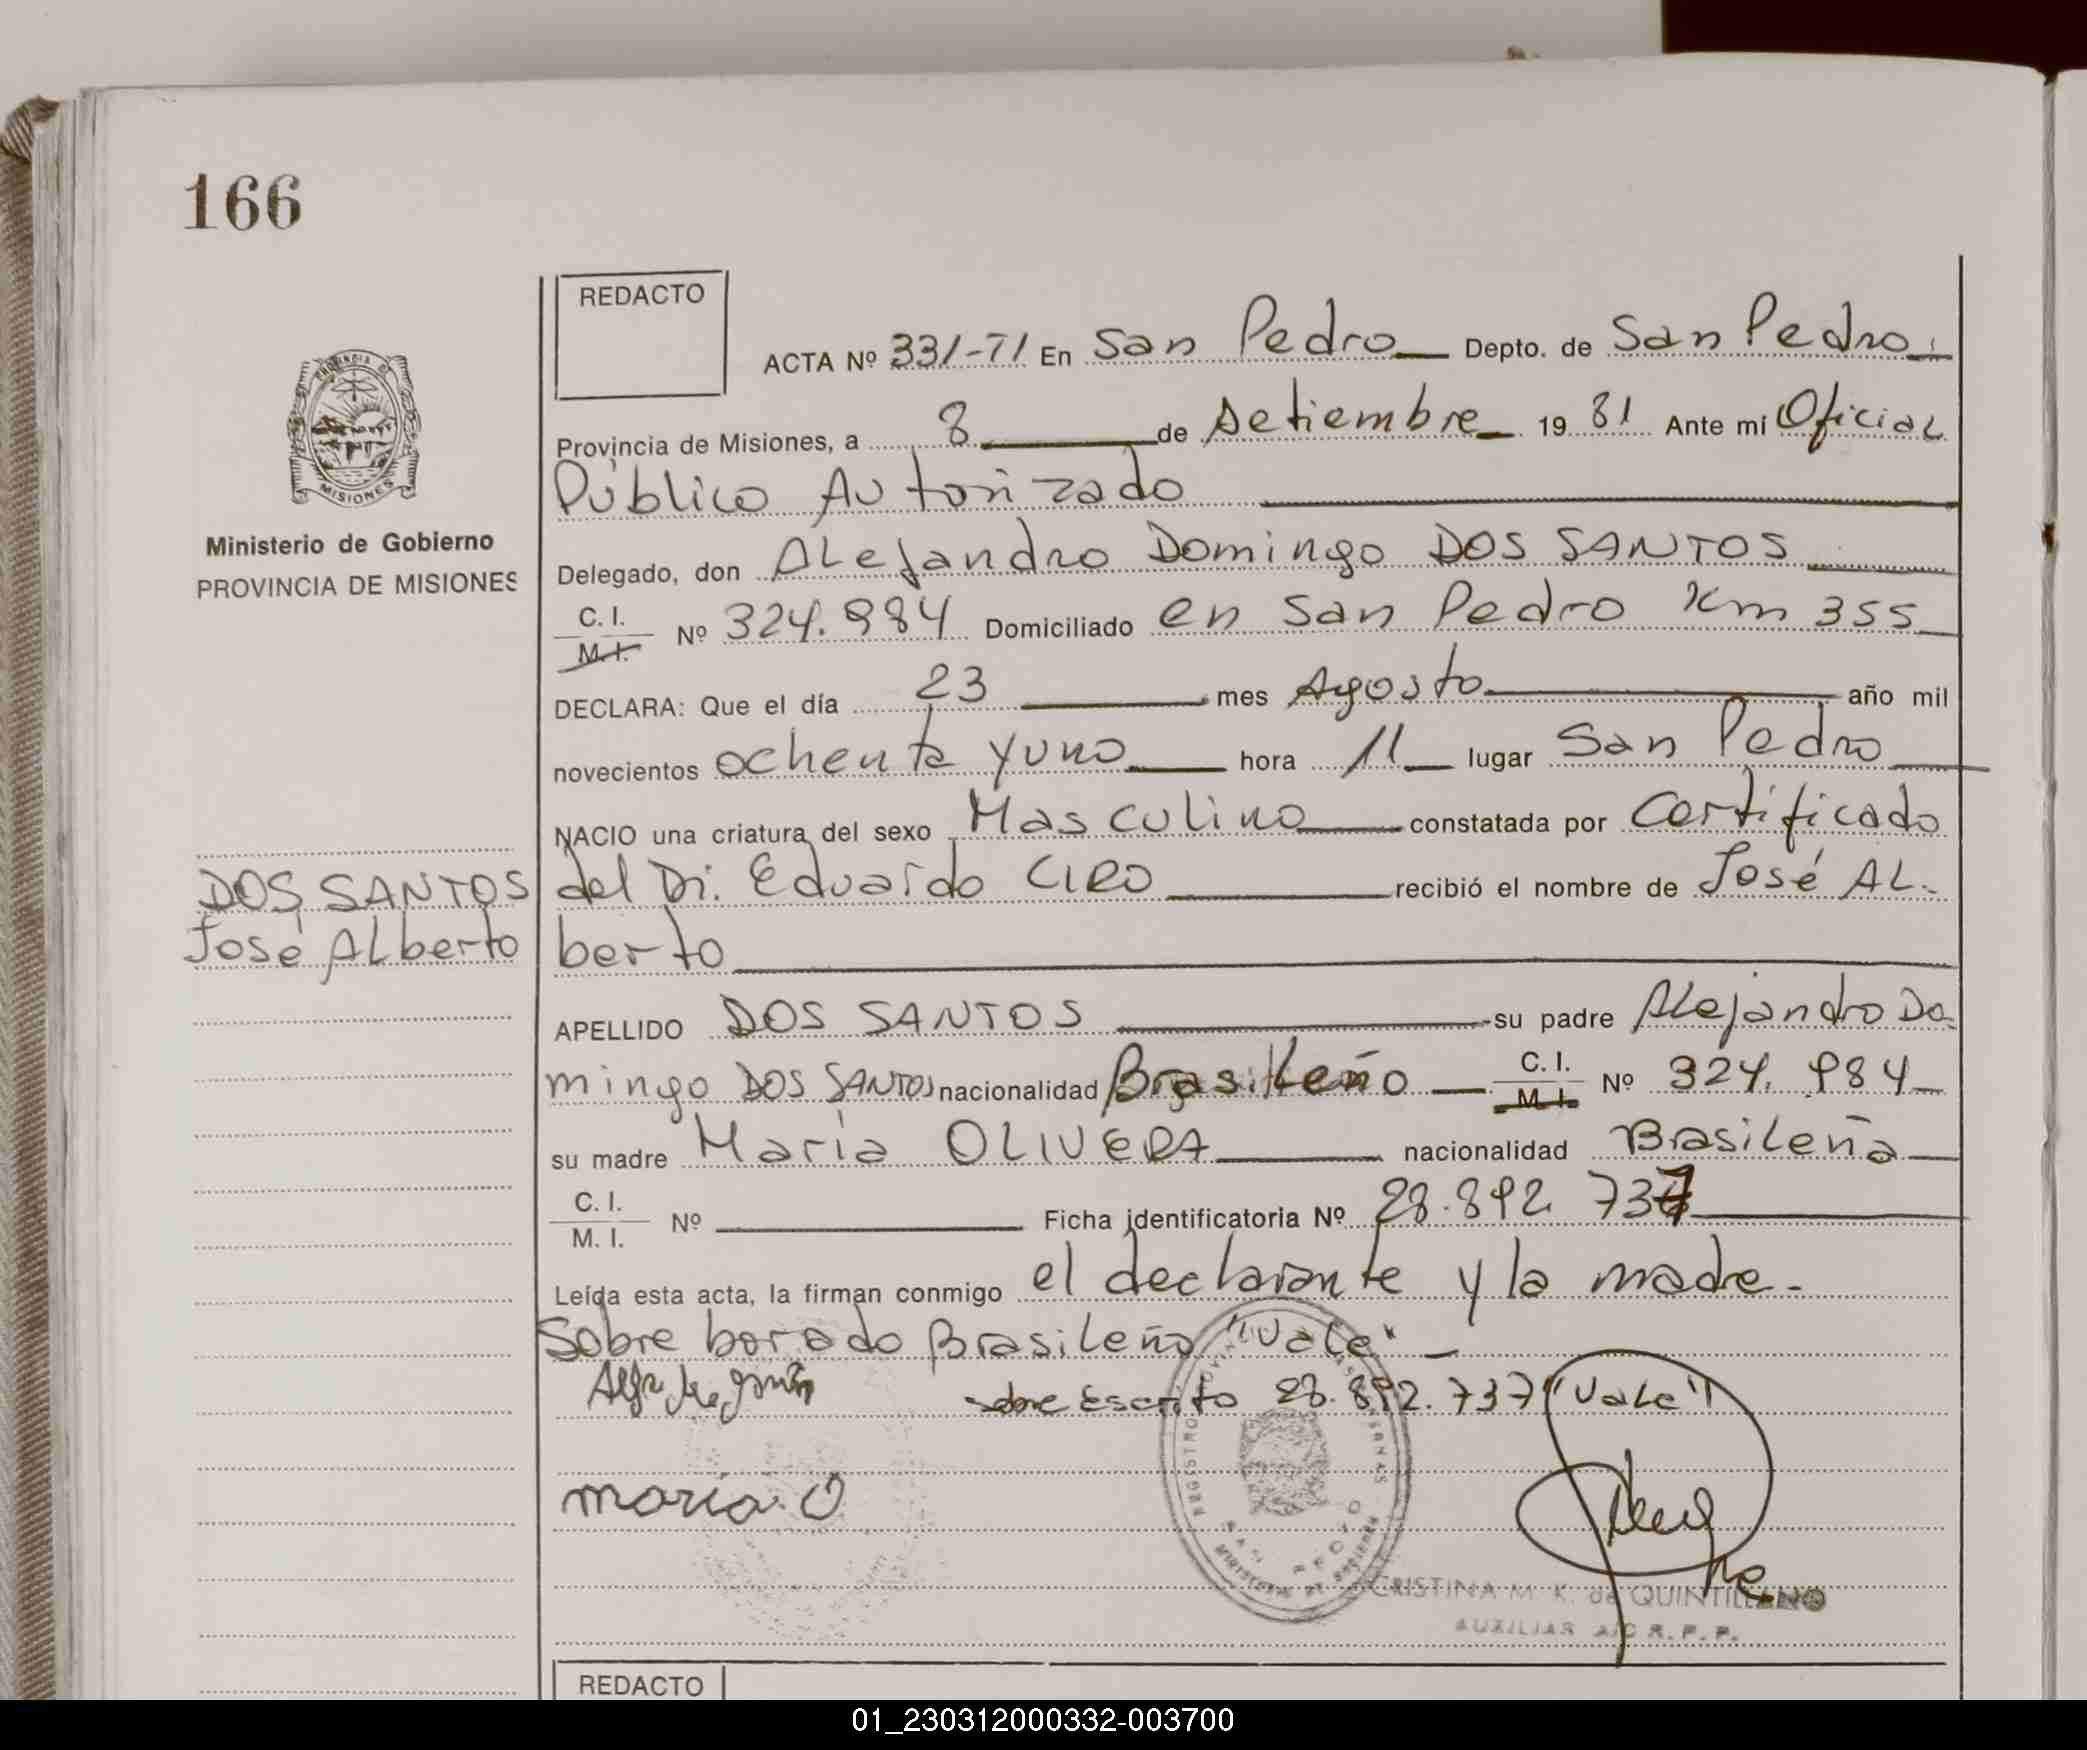 166
REDACTO
ACTA Nº 331-TI En San Pedro Depto. de San Pedro
Provincia de Misiones, a 8 de Setiembre 19 81 Ante mí Oficial
Público Autorizado
Ministerio de Gobierno
PROVINCIA DE MISIONES
MISIONES
Delegado, don Alejandro Domingo DOS SANTOS
C. I.
M. I. Nº 324.984 Domiciliado en San Pedro Km 355
DECLARA: Que el día 23 mes Agosto año mil
novecientos ochenta y uno hora 11 lugar San Pedro
NACIO una criatura del sexo Masculino constatada por Certificado
DOS SANTOS
José Alberto
del Dr. Eduardo CIRO recibió el nombre de José Al-
berto
APELLIDO DOS SANTOS su padre Alejandro Do
mingo DOS SANTOS nacionalidad Brasileño C. I.
M. I. Nº 324.984
su madre María OLIVERA nacionalidad Brasileña
C. I.
M. I. Nº Ficha identificatoria Nº 28.892 737
Leída esta acta, la firman conmigo el declarante y la madre.-
Sobre borado Brasileño "Vale"
sobre Escrito 28.892.737 "Vale"
maría. O
SAN PEDRO
CRISTINA M. K. de QUINTILLANO
AUXILIAR A/C R.P.P.
REDACTO
01_230312000332-003700